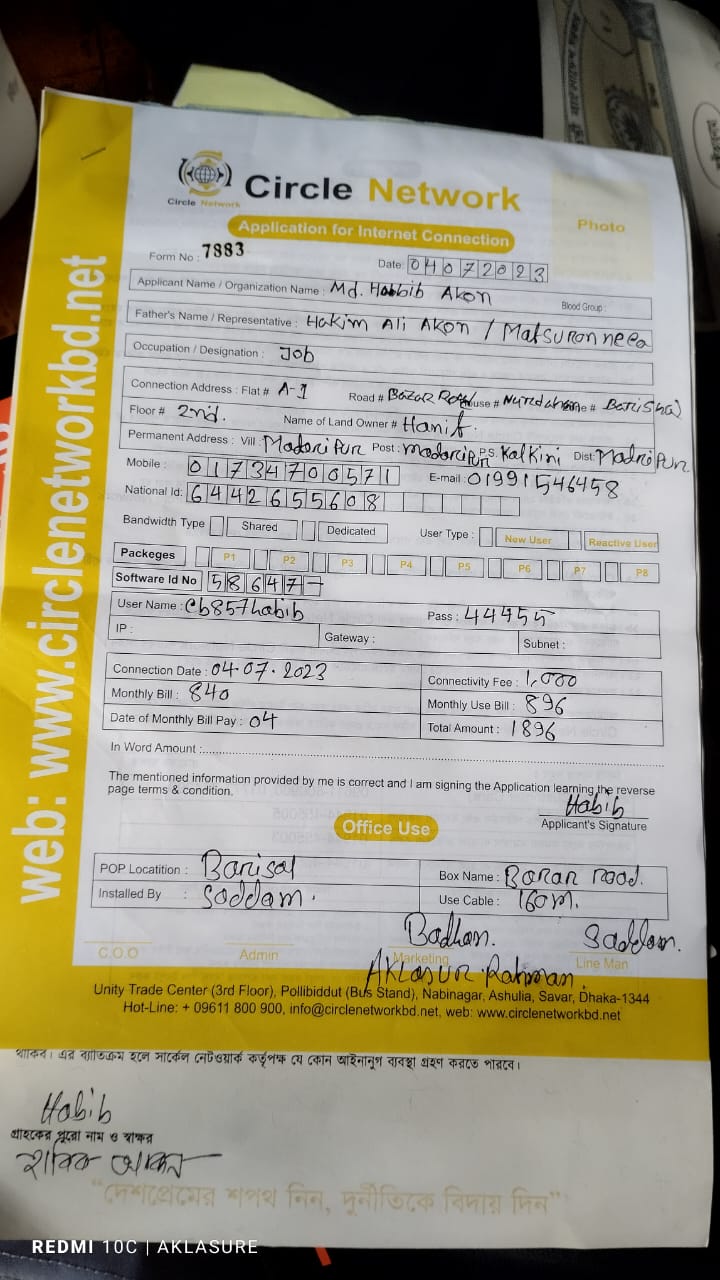 Circle Network
Circle Network
Application for Internet Connection
Photo
Form No : 7883
Date: 04072023
Applicant Name / Organization Name : Md. Habbib Akon Blood Group :
Father's Name / Representative : Hakim Ali Akon / Matsuronneea
Occupation / Designation : Job
Connection Address : Flat # A-1 Road # Bazar Road House # # Barishal
Floor # 2nd. Name of Land Owner # Hanif.
Permanent Address : Vill Madaripur Post : madaripur P.S. Kalkini Dist: Madripur
Mobile : 01734700571 E-mail : 01991546458
National Id: 6442655608
Bandwidth Type Shared Dedicated User Type : New User Reactive User
Packeges P1 P2 P3 P4 P5 P6 P7 P8
Software Id No 58647
User Name : cb857habib Pass : 44455
IP : Gateway : Subnet :
Connection Date : 04-07-2023 Connectivity Fee : 1,000
Monthly Bill : 840 Monthly Use Bill : 896
Date of Monthly Bill Pay : 04 Total Amount : 1896
In Word Amount :
The mentioned information provided by me is correct and I am signing the Application learning the reverse
page terms & condition.
Habib
Applicant's Signature
Office Use
POP Locatition : Barisal Box Name : Bazar road.
Installed By : Saddam. Use Cable : 160m.
Badhan. Saddam.
C.O.O Admin Marketing Line Man
Aklasur Rahman.
Unity Trade Center (3rd Floor), Pollibiddut (Bus Stand), Nabinagar, Ashulia, Savar, Dhaka-1344
Hot-Line: + 09611 800 900, info@circlenetworkbd.net, web: www.circlenetworkbd.net
web: www.circlenetworkbd.net
থাকিব। এর ব্যতিক্রম হলে সার্কেল নেটওয়ার্ক কর্তৃপক্ষ যে কোন আইনানুগ ব্যবস্থা গ্রহণ করতে পারবে।
Habib
গ্রাহকের পুরো নাম ও স্বাক্ষর
হাবিব আকন
“দেশপ্রেমের শপথ নিন, দুর্নীতিকে বিদায় দিন”
REDMI 10C | AKLASURE